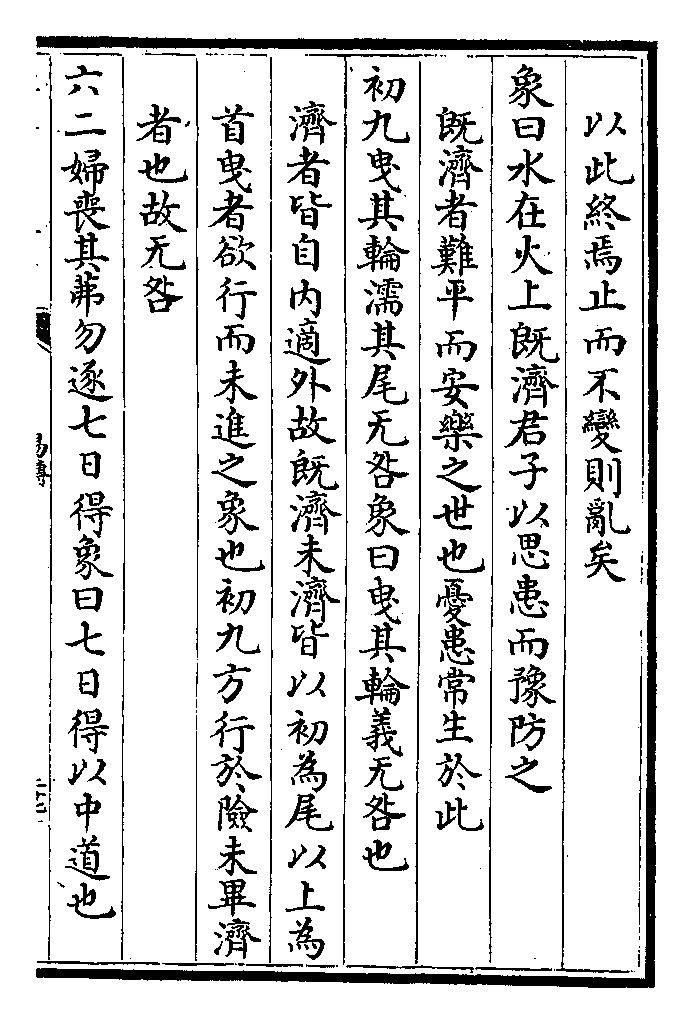 以此終焉止而不變則亂矣
象曰水在火上既濟君子以思患而豫防之
既濟者難平而安樂之世也憂患常生於此
初九曳其輪濡其尾无咎象曰曳其輪義无咎也
濟者皆自内適外故既濟未濟皆以初為尾以上為
首曳者欲行而未進之象也初九方行於險未畢濟
者也故无咎
六二婦喪其茀勿逐七日得象曰七日得以中道也
易傳